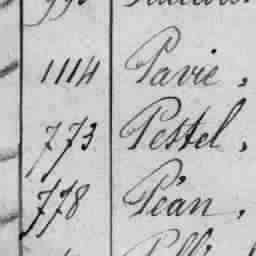 1114 Pavie,
773 Pestel,
778 Péan,